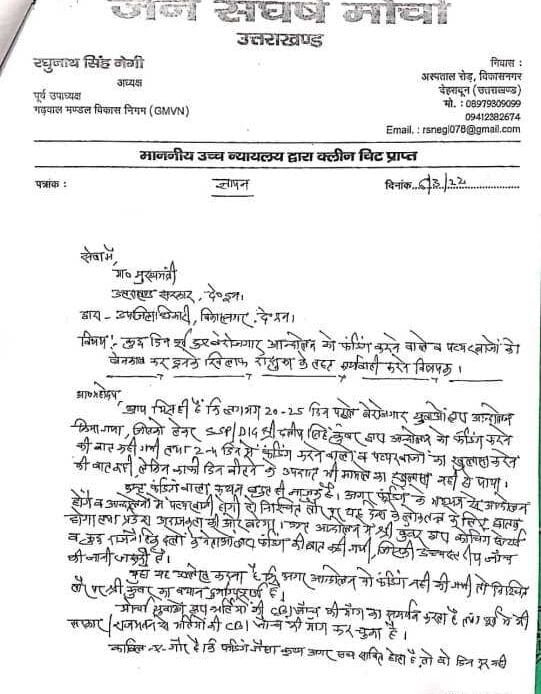 जन संघर्ष मोर्चा
उत्तराखण्ड
रघुनाथ सिंह नेगी
अध्यक्ष
पूर्व उपाध्यक्ष
गढ़वाल मण्डल विकास निगम (GMVN)
निवास :
अस्पताल रोड़, विकासनगर
देहरादून (उत्तराखण्ड)
मो. : 08979309099
09412382674
Email. : rsnegi078@gmail.com
माननीय उच्च न्यायलय द्वारा क्लीन चिट प्राप्त
पत्रांक :
ज्ञापन
दिनांक
सेवा में,
मा० मुख्यमंत्री
उत्तराखण्ड सरकार, दे०दून।
द्वारा - उपजिलाधिकारी, विकासनगर, दे०दून।
विषय: कुछ दिन पूर्व बेरोजगार आन्दोलन को फंडिंग करने वाले व पत्थरबाजों को
बेनकाब कर इनके खिलाफ के तहत कार्यवाही करने विषयक।
मा० महोदय,
आप भिज्ञ ही हैं कि लगभग 20-25 दिन पहले बेरोजगार युवाओं द्वारा आन्दोलन
किया गया, जिसको लेकर SSP/DIG श्री दलीप सिंह कुंवर द्वारा आन्दोलन को फंडिंग करने
की बात कही गयी तथा 2-4 दिन में फंडिंग करने वालों व पत्थरबाजों का खुलासा करने
की बात कही, लेकिन काफी दिन बीतने के उपरान्त भी मामले का खुलासा नहीं हो पाया।
फंडिंग वाला कथन बहुत ही है। अगर फंडिंग के माध्यम से आन्दोलन
होंगे व आन्दोलनों में पत्थरबाजी होगी तो निश्चित तौर पर यह के लोकतन्त्र के लिए
होगा तथा प्रदेश अराजकता की ओर बढेगा। आन्दोलन में श्री कुंवर द्वारा कोचिंग सेंटर
व कुछ राजनैतिक दलों के नेताओं द्वारा फंडिंग की बात कही गयी, जिसकी उच्चस्तरीय जांच
की जानी जरूरी है।
यहां यह उल्लेख करना है कि अगर आन्दोलन को फंडिंग नहीं की गयी तो निश्चित
तौर पर श्री कुंवर का बयान दुर्भाग्यपूर्ण है।
मोर्चा युवाओं द्वारा भर्तियों की CBI जांच की मांग का समर्थन करता है तथा पूर्व में भी
सरकार/राजभवन से भर्तियों की CBI जांच की मांग कर चुका है।
काबिल-ए-गौर है कि फंडिंग जैसा कृत्य अगर सच साबित होता है, तो वो दिन दूर नहीं